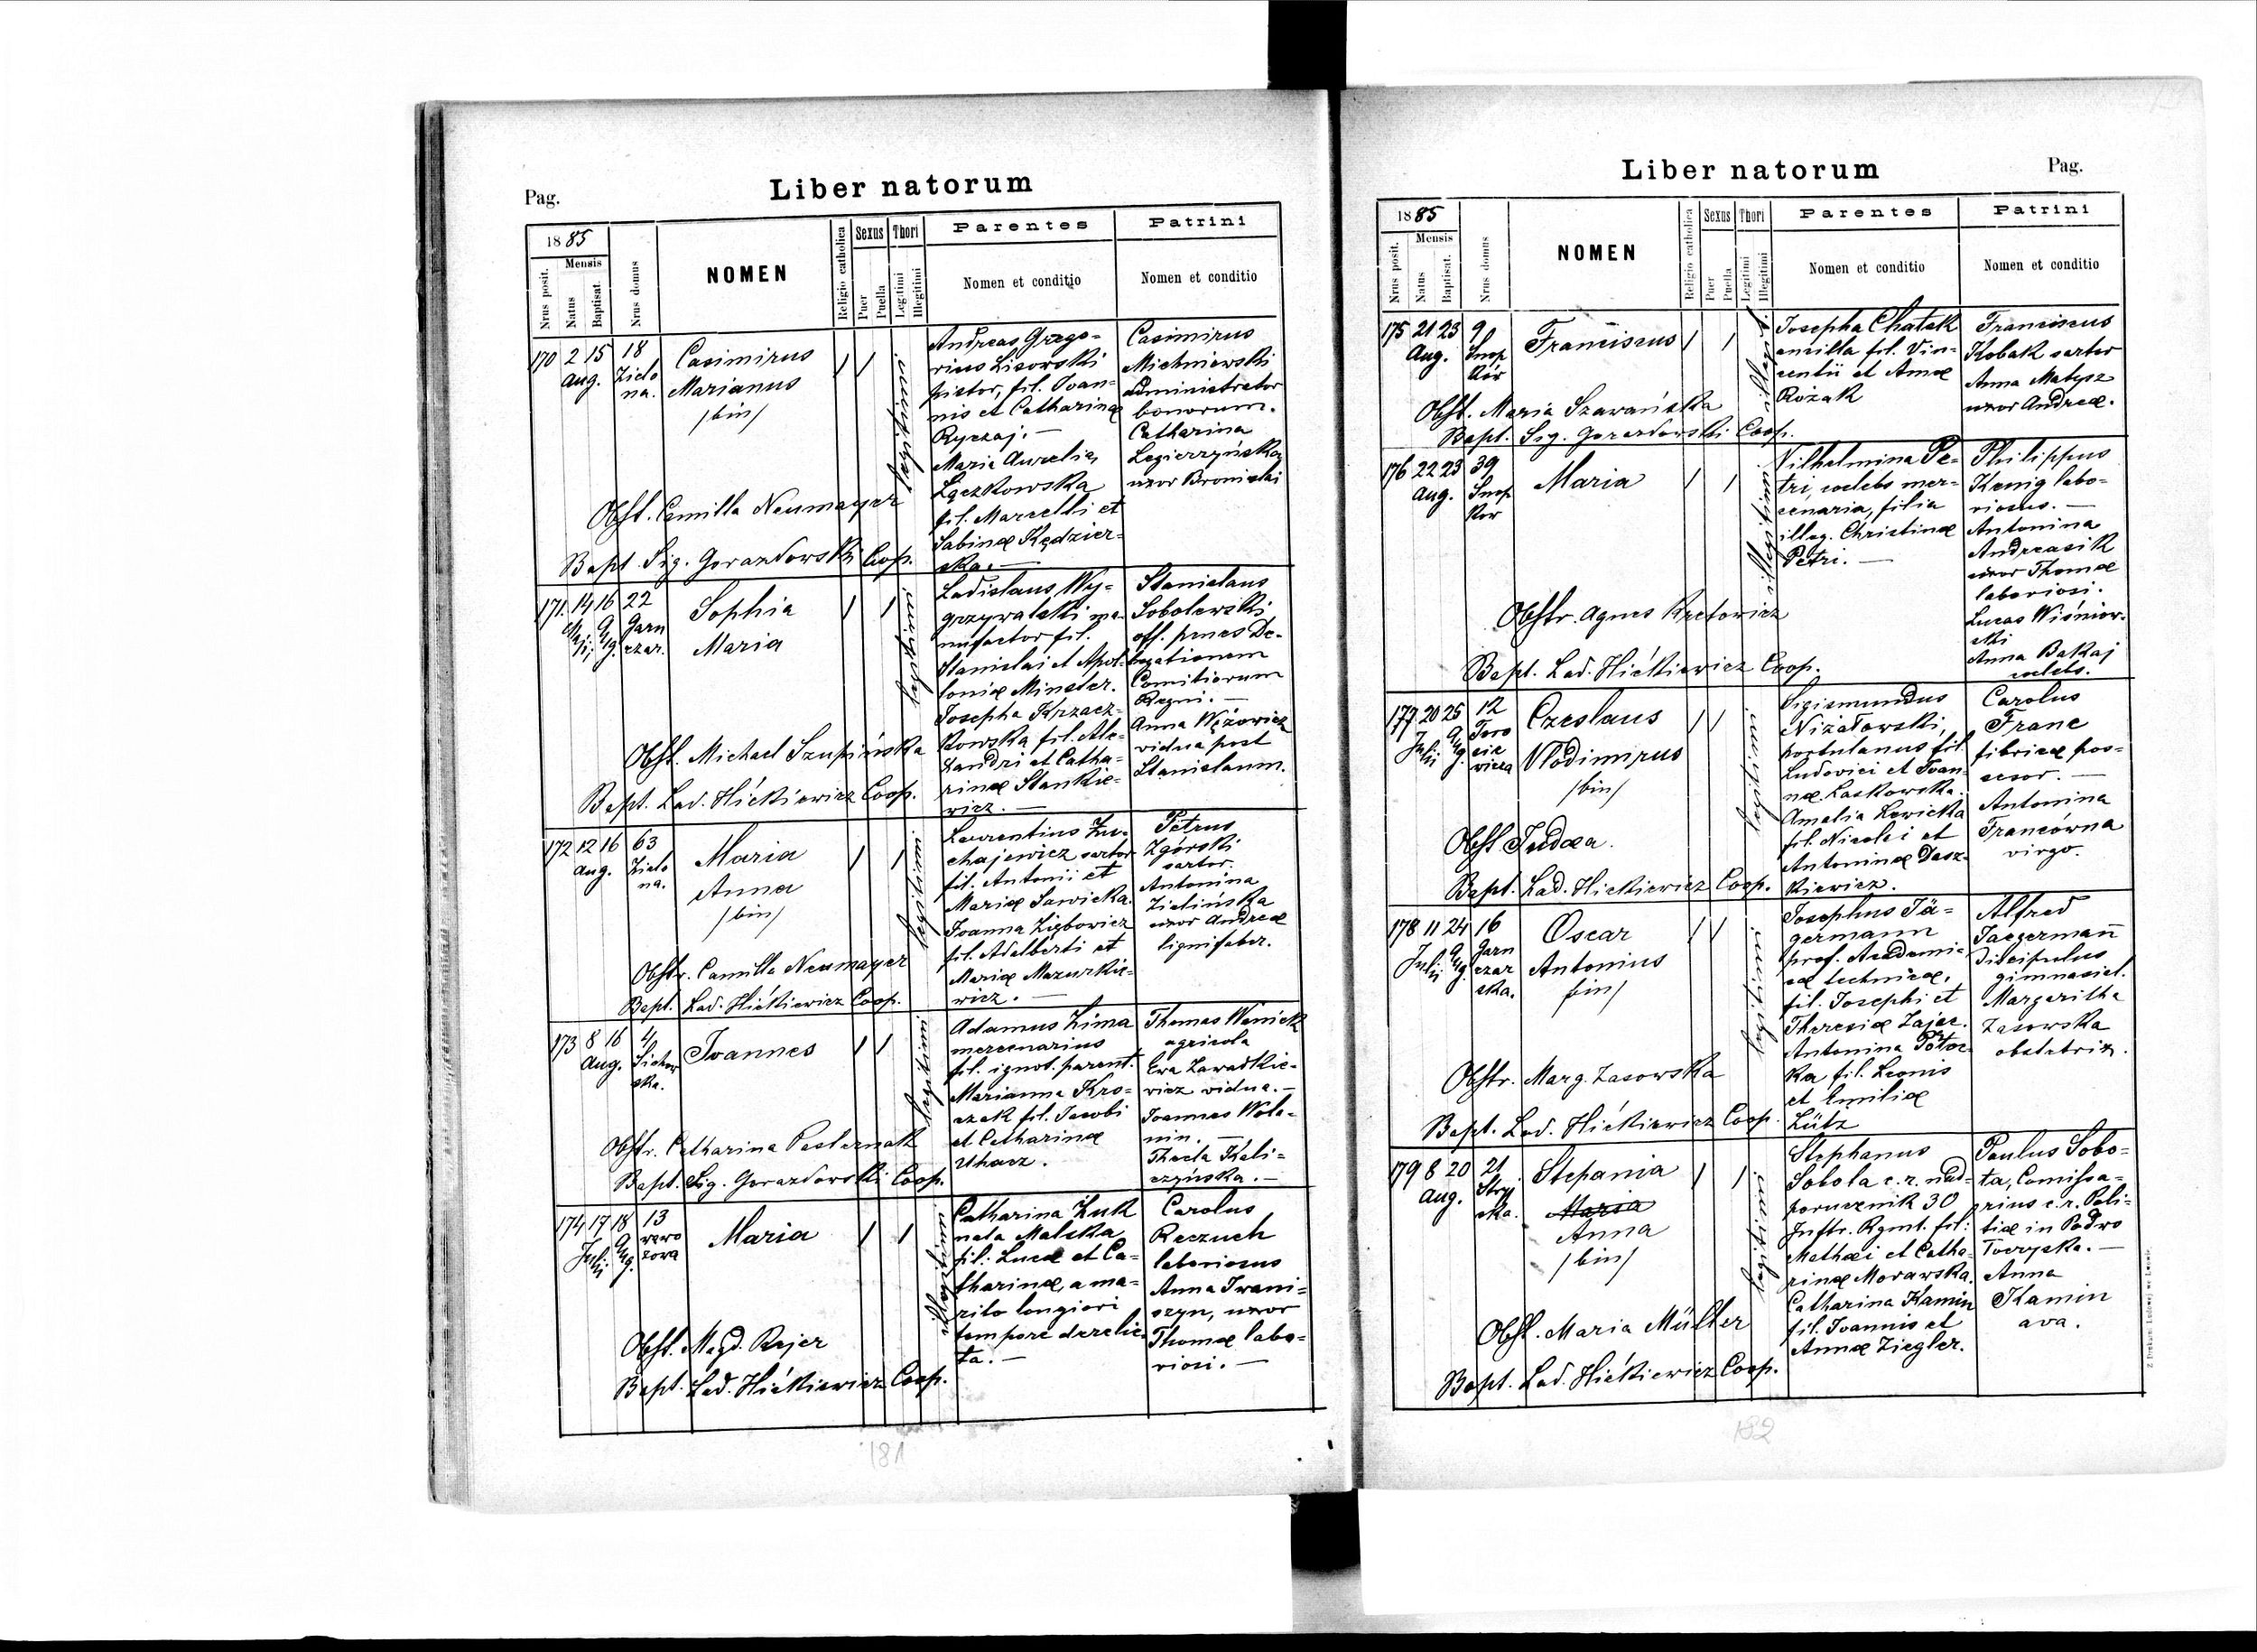 Pag.
Liber natorum
1885
Mensis
Nrus posit.
Natus
Baptisat.
Nrus domus
NOMEN
Religio catholica
Sexus
Puer
Puella
Thori
Legitimi
Illegitimi
Parentes
Nomen et conditio
Patrini
Nomen et conditio
170 2 15 18
Aug. Zielo
na.
Casimirus
Marianus
/bin/
legitimi
Andreas Grzego-
rius Lisowski
pictor, fil. Joan-
nis et Catharinæ
Ryczaj. —
Maria Aurelia
Łączkowska
fil. Marcelli et
Sabinæ Kędzier-
ska. —
Casimirus
Michniewski
administrator
bonorum.
Catharina
Legierzyńska
uxor Bronislai
Obst. Camilla Neumayer
Bapt. Sig. Gorazdowski Coop.
171. 14 16 22
Maji Aug. Garn
czar.
Sophia
Maria
legitimi
Ladislaus Wy-
grzywalski ma-
nufactor fil.
Stanislai et Apol-
loniæ Minster.
Josepha Krzacz-
kowska fil. Ale-
xandri et Catha-
rinæ Stankie-
wicz. —
Stanislaus
Sobolewski
off. penes De-
legationem
Comitiorum
Regni. —
Anna Wężowicz
vidua post
Stanislaum.
Obst. Michael Szupińska
Bapt. Lad. Hićkiewicz Coop.
172 12 16 63
Aug. Zielo
na.
Maria
Anna
/bin/
legitimi
Laurentius Zu-
chajewicz sartor
fil. Antonii et
Mariæ Sawicka.
Joanna Ziębowicz
fil. Adalberti et
Mariæ Mazurkie-
wicz. —
Petrus
Zgórski
sartor.
Antonina
Zielińska
uxor Andreæ
lignifaber.
Obstr. Camilla Neumayer
Bapt. Lad. Hićkiewicz Coop.
173 8 16 4
Aug. Sichow
ska.
Joannes
legitimi
Adamus Zima
mercenarius
fil. ignot. parent.
Marianna Kro-
czak fil. Jacobi
et Catharinæ
Uhacz.
Thomas Wanick
agricola
Ewa Zawadkie-
wicz vidua. —
Joannes Wolo-
nin. —
Thecla Kali-
czyńska. —
Obstr. Catharina Pasternak
Bapt. Sig. Gorazdowski Coop.
174 17 18 13
Julii Aug. wowo
zowa
Maria
illegitimi
Catharina Żuk
nata Malska
fil: Lucæ et Ca-
tharinæ, a ma-
rito longiori
tempore derelic-
ta. —
Carolus
Raczuch
laboriosus
Anna Iwani-
szyn, uxor
Thomæ labo-
riosi. —
Obst. Magd. Rejer
Bapt. Lad. Hićkiewicz Coop.
181
Liber natorum
Pag.
1885
Mensis
Nrus posit.
Natus
Baptisat.
Nrus domus
NOMEN
Religio catholica
Sexus
Puer
Puella
Thori
Legitimi
Illegitimi
Parentes
Nomen et conditio
Patrini
Nomen et conditio
175 21 23 9
Aug. Snop
ków
Franciscus
illegitimi
Josepha Chatak
ancilla fil. Vin-
centii et Annæ
Rożak
Franciscus
Kobak sartor
Anna Matysz
uxor Andreæ.
Obst. Maria Szawańska
Bapt. Sig. Gorazdowski Coop.
176 22 23 39
Aug. Snop
ków
Maria
illegitimi
Vilhelmina Pe-
tri, cælebs mer-
cenaria, filia
illeg. Christinæ
Petri. —
Philippus
Kænig labo-
riosus. —
Antonina
Andreasik
uxor Thomæ
laboriosi.
Lucas Wiśniow-
ski
Anna Bakaj
cælebs.
Obstr. Agnes Kretowicz
Bapt. Lad. Hićkiewicz Coop.
177 20 25 12
Julii Aug. Toro
sie
wicza
Czeslaus
Vlodimirus
/bin/
legitimi
Sigismundus
Niżałowski,
portulanus fil.
Ludovici et Joan-
næ Laskowska.
Amalia Lewicka
fil. Nicolai et
Antoninæ Dasz-
kiewicz.
Carolus
Franc
fabricæ pos-
sesor. —
Antonina
Francówna
virgo.
Obst. Judæa.
Bapt. Lad. Hickiewicz Coop.
178 11 24 16
Julii Aug. Garn
czar
ska.
Oscar
Antonius
/bin/
legitimi
Josephus Jä-
germann
prof. Academi-
æ technicæ,
fil. Josephi et
Theresiæ Zajac.
Antonina Potoc-
ka fil. Leonis
et Emiliæ
Lütz
Alfred
Jaegermañ
discipulus
gimnasial.
Margaritha
Zasowska
obstetrix.
Obstr. Marg. Zasowska
Bapt. Lad. Hićkiewicz Coop.
179 8 20 21
Aug. Stry
ska.
Stepania
Maria
Anna
/bin/
legitimi
Stephanus
Sobola c. r. nad-
porucznik 30
Inftr. Rgmt. fil:
Mathæi et Catha-
rinæ Morawska.
Catharina Kamin
fil. Joannis et
Annæ Ziegler.
Paulus Sobo-
ta, Comissa-
rius c. r. Poli-
tiæ in Podwo
łoczyska. —
Anna
Kamin
ava.
Obst. Maria Müller
Bapt. Lad. Hićkiewicz Coop.
Z Drukarni Ludowej we Lwowie.
182